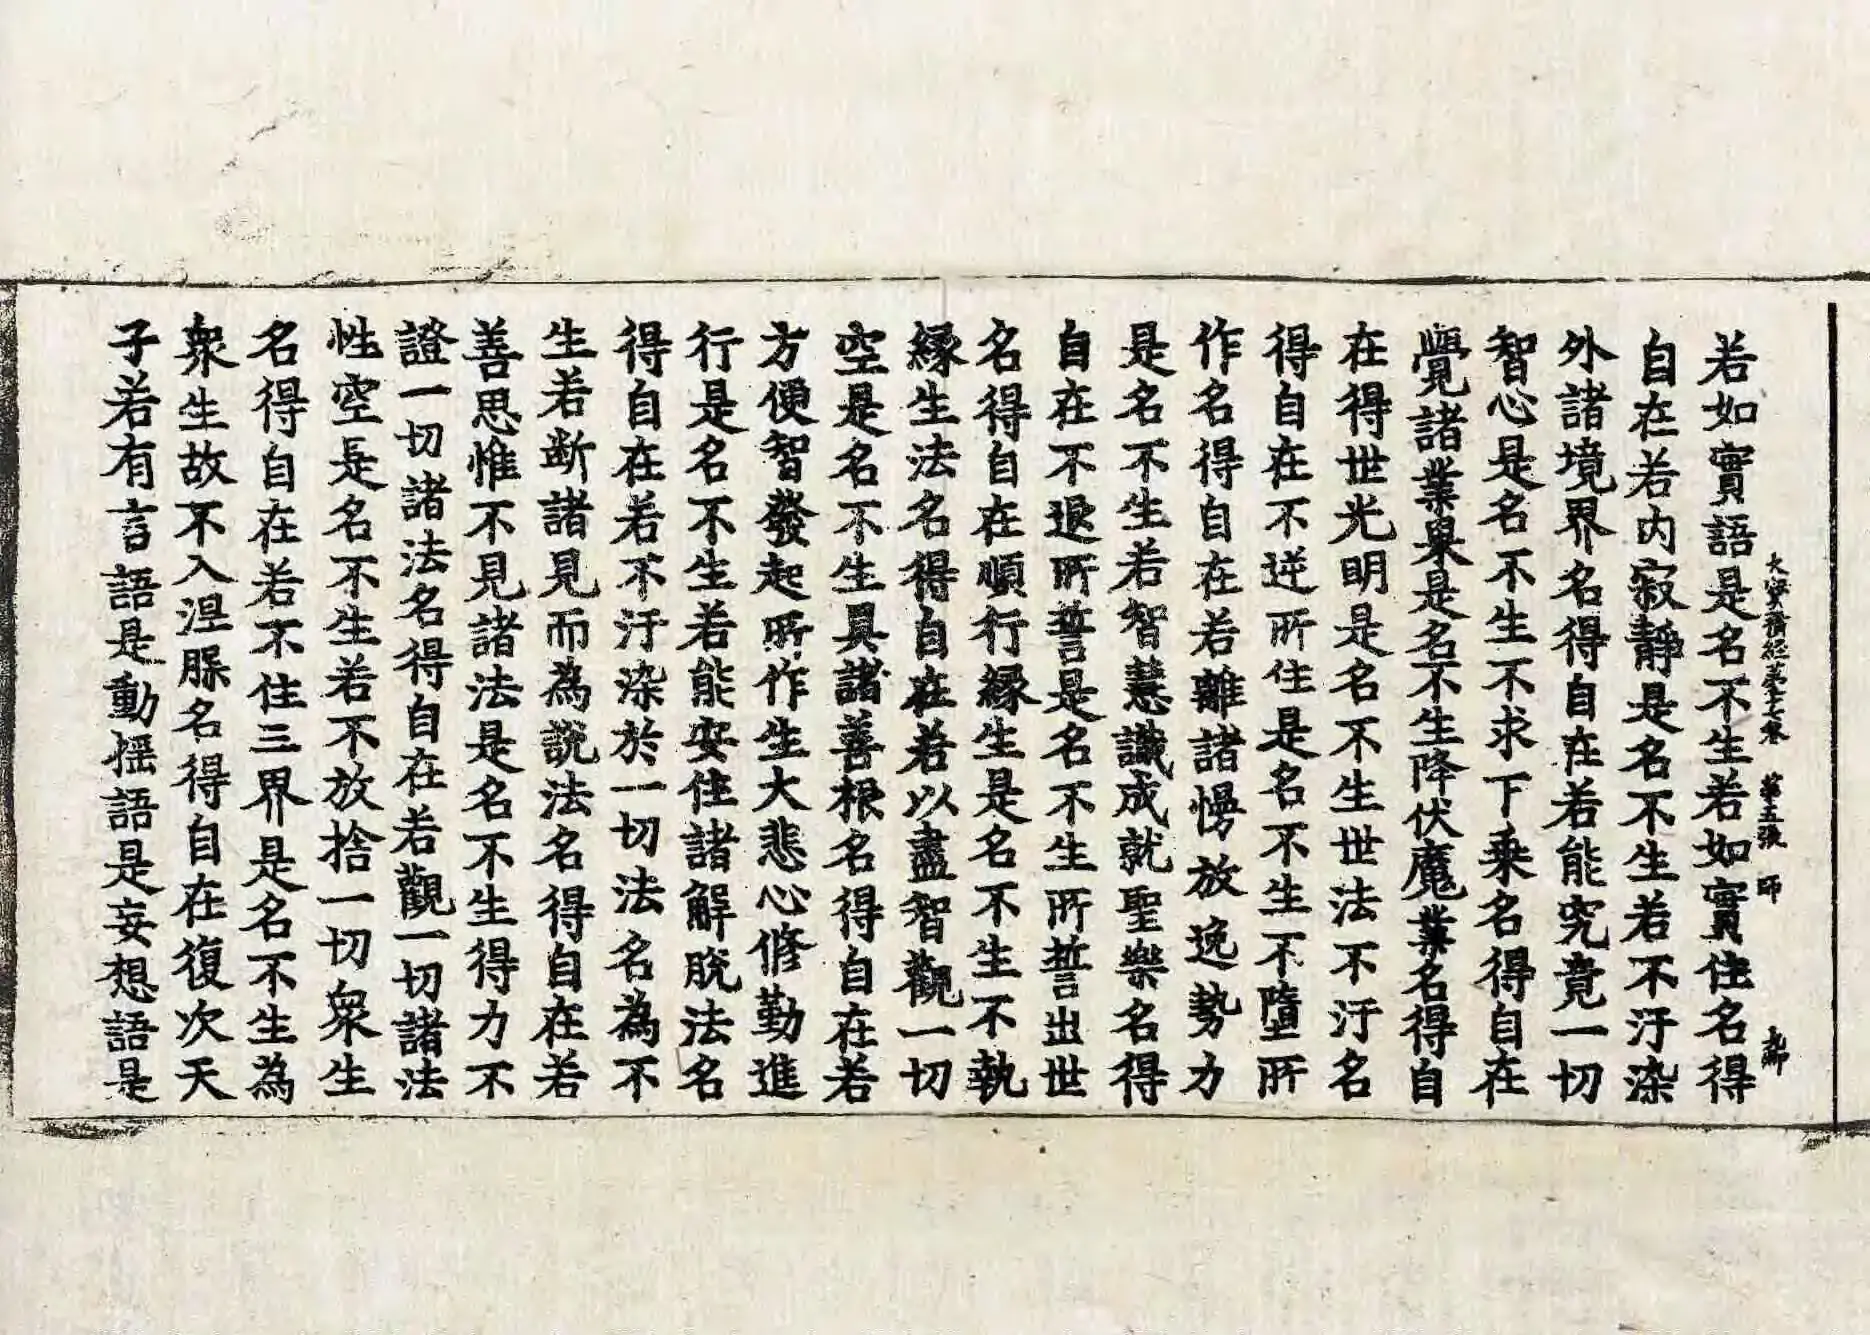 大寳積經第𠦜卷 第五張 師
若如實語是名不生若如實住名得
自在若内寂靜是名不生若不汙染
外諸境界名得自在若能究竟一切
智心是名不生不求下乘名得自在
覺諸業果是名不生降伏魔業名得自
在得世光明是名不生世法不汙名
得自在不逆所住是名不生不墮所
作名得自在若離諸慢放逸勢力
是名不生若智慧識成就聖樂名得
自在不退所誓是名不生所誓出世
名得自在順行緣生是名不生不執
緣生法名得自在若以盡智觀一切
空是名不生具諸善根名得自在若
方便智發起所作生大悲心修勤進
行是名不生若能安住諸解脫法名
得自在若不汙染於一切法名為不
生若斷諸見而為說法名得自在若
善思惟不見諸法是名不生得力不
證一切諸法名得自在若觀一切諸法
性空是名不生若不放捨一切衆生
名得自在若不住三界是名不生為
衆生故不入涅槃名得自在復次天
子若有言語是動揺語是妄想語是